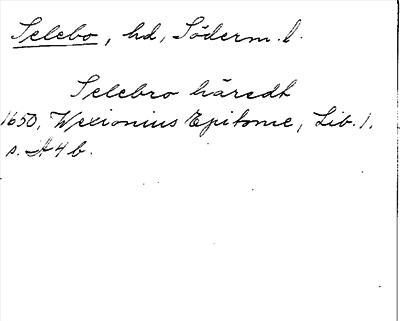 Selebo, hd, Söderm. l.
Selebro häredt
1650, Wexionius Epitome, Lib. 1.
s. A 4 b.